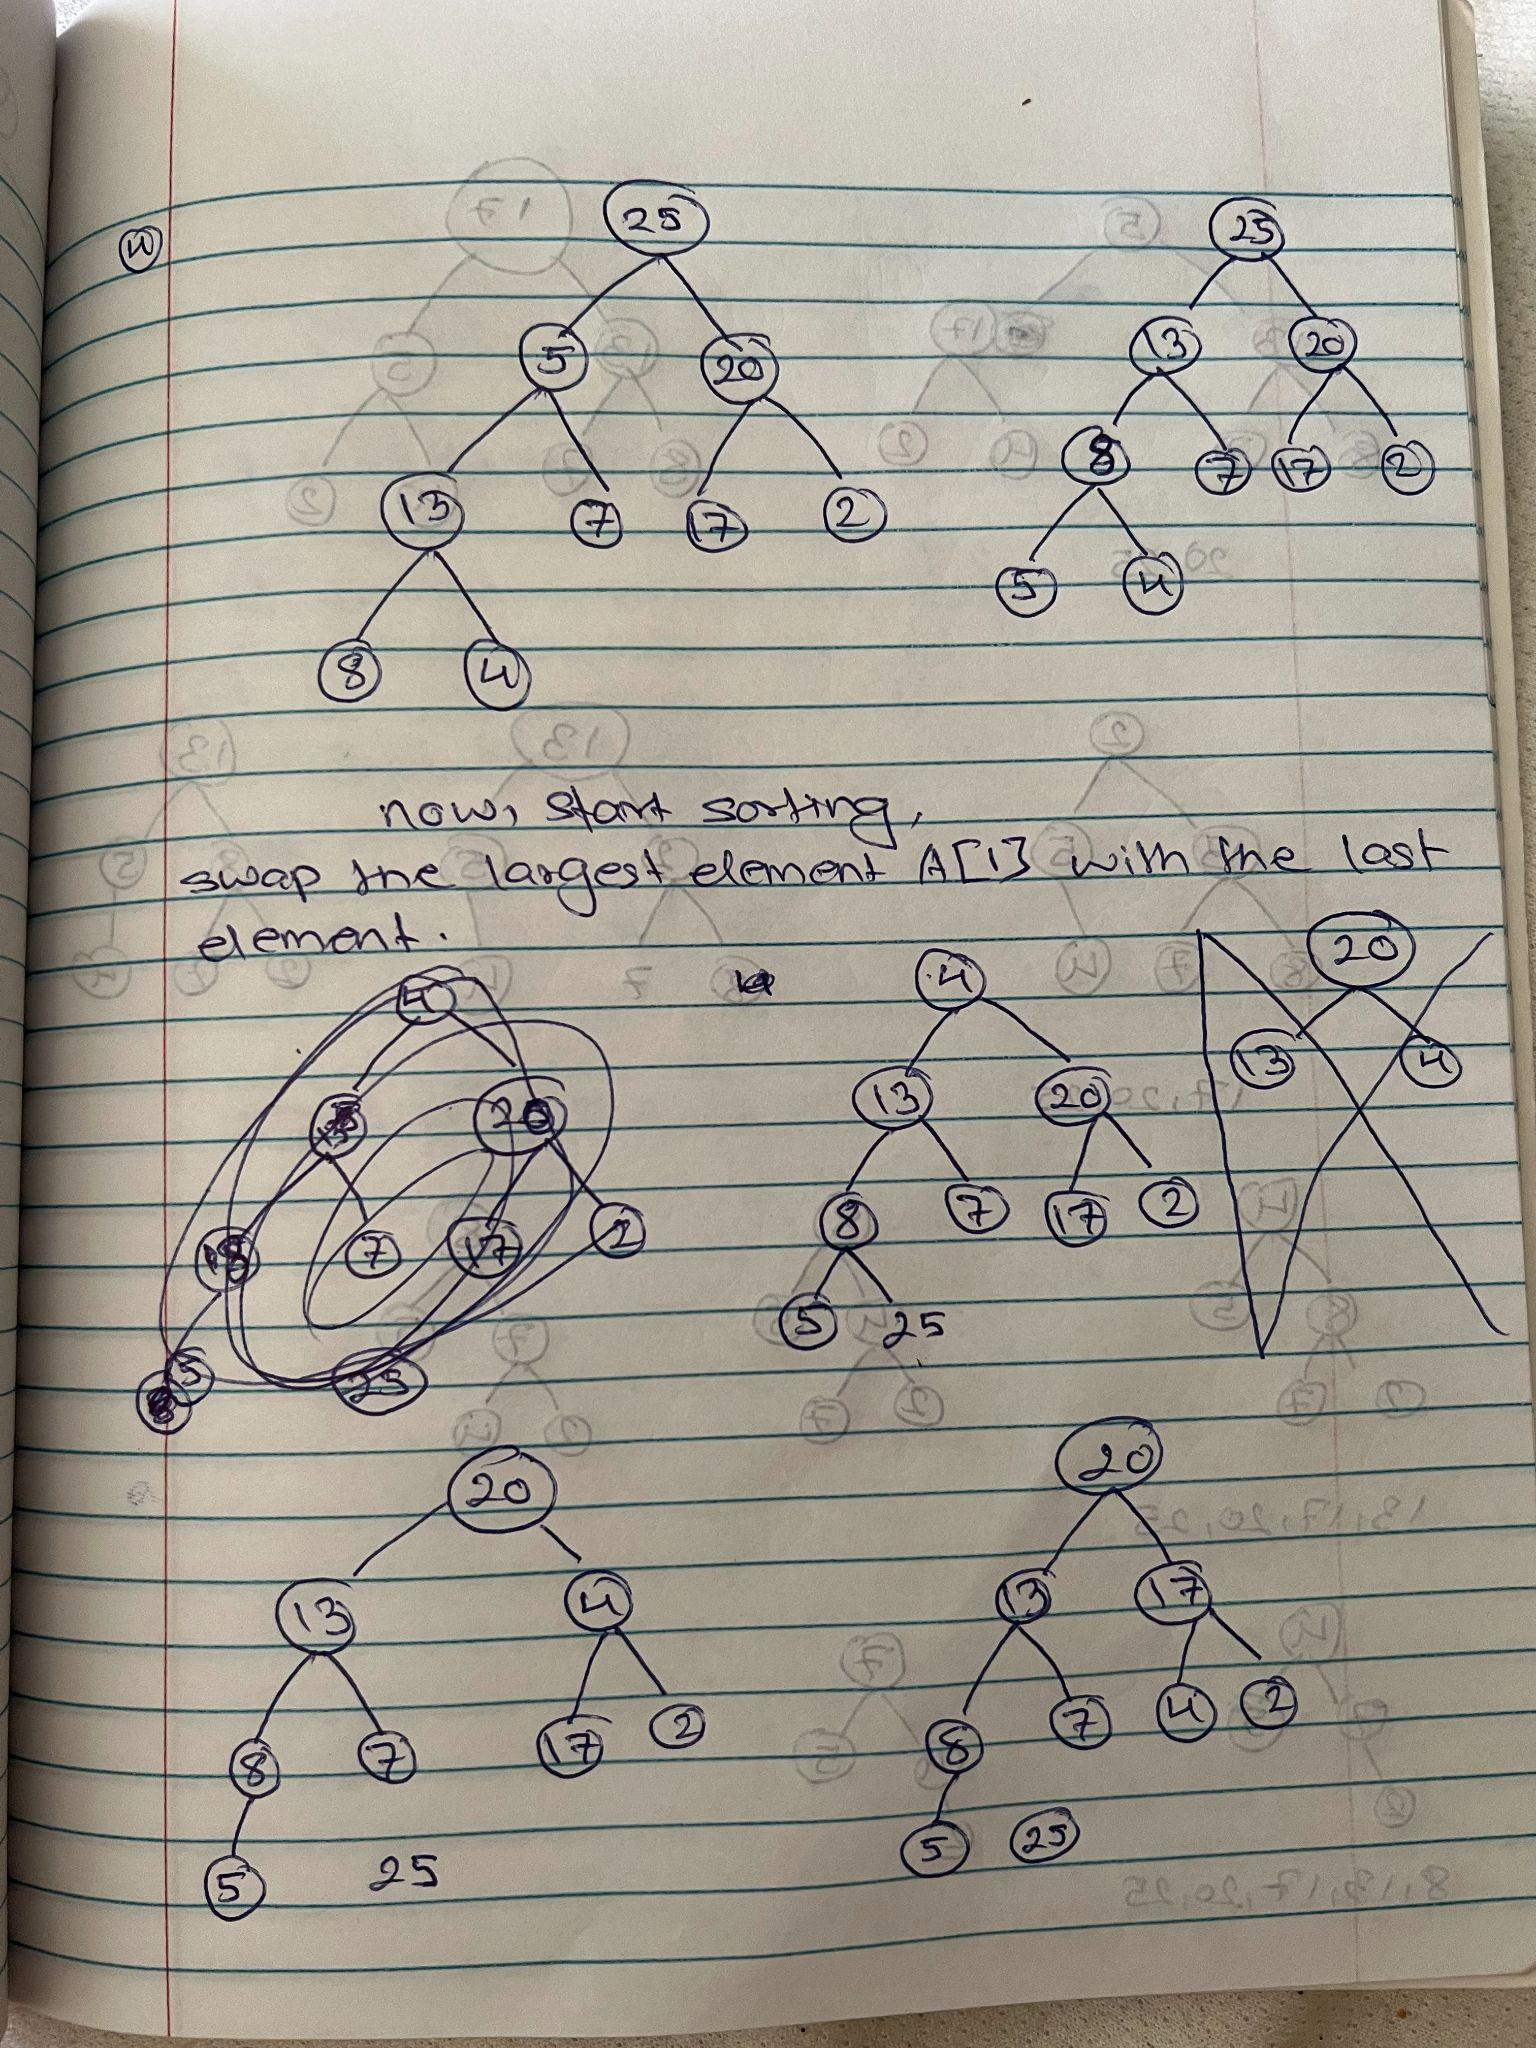 ④
25
5 20
13 7 17 2
8 4
25
13 20
8 7 17 2
5 4
now, start sorting,
swap the largest element A[1] with the last
element.
4
20
7 17 2
5
25
4
13 20
8 7 17 2
5 25
20
13 4
20
13 4
8 7 17 2
5 25
20
13 17
8 7 4 2
5 25